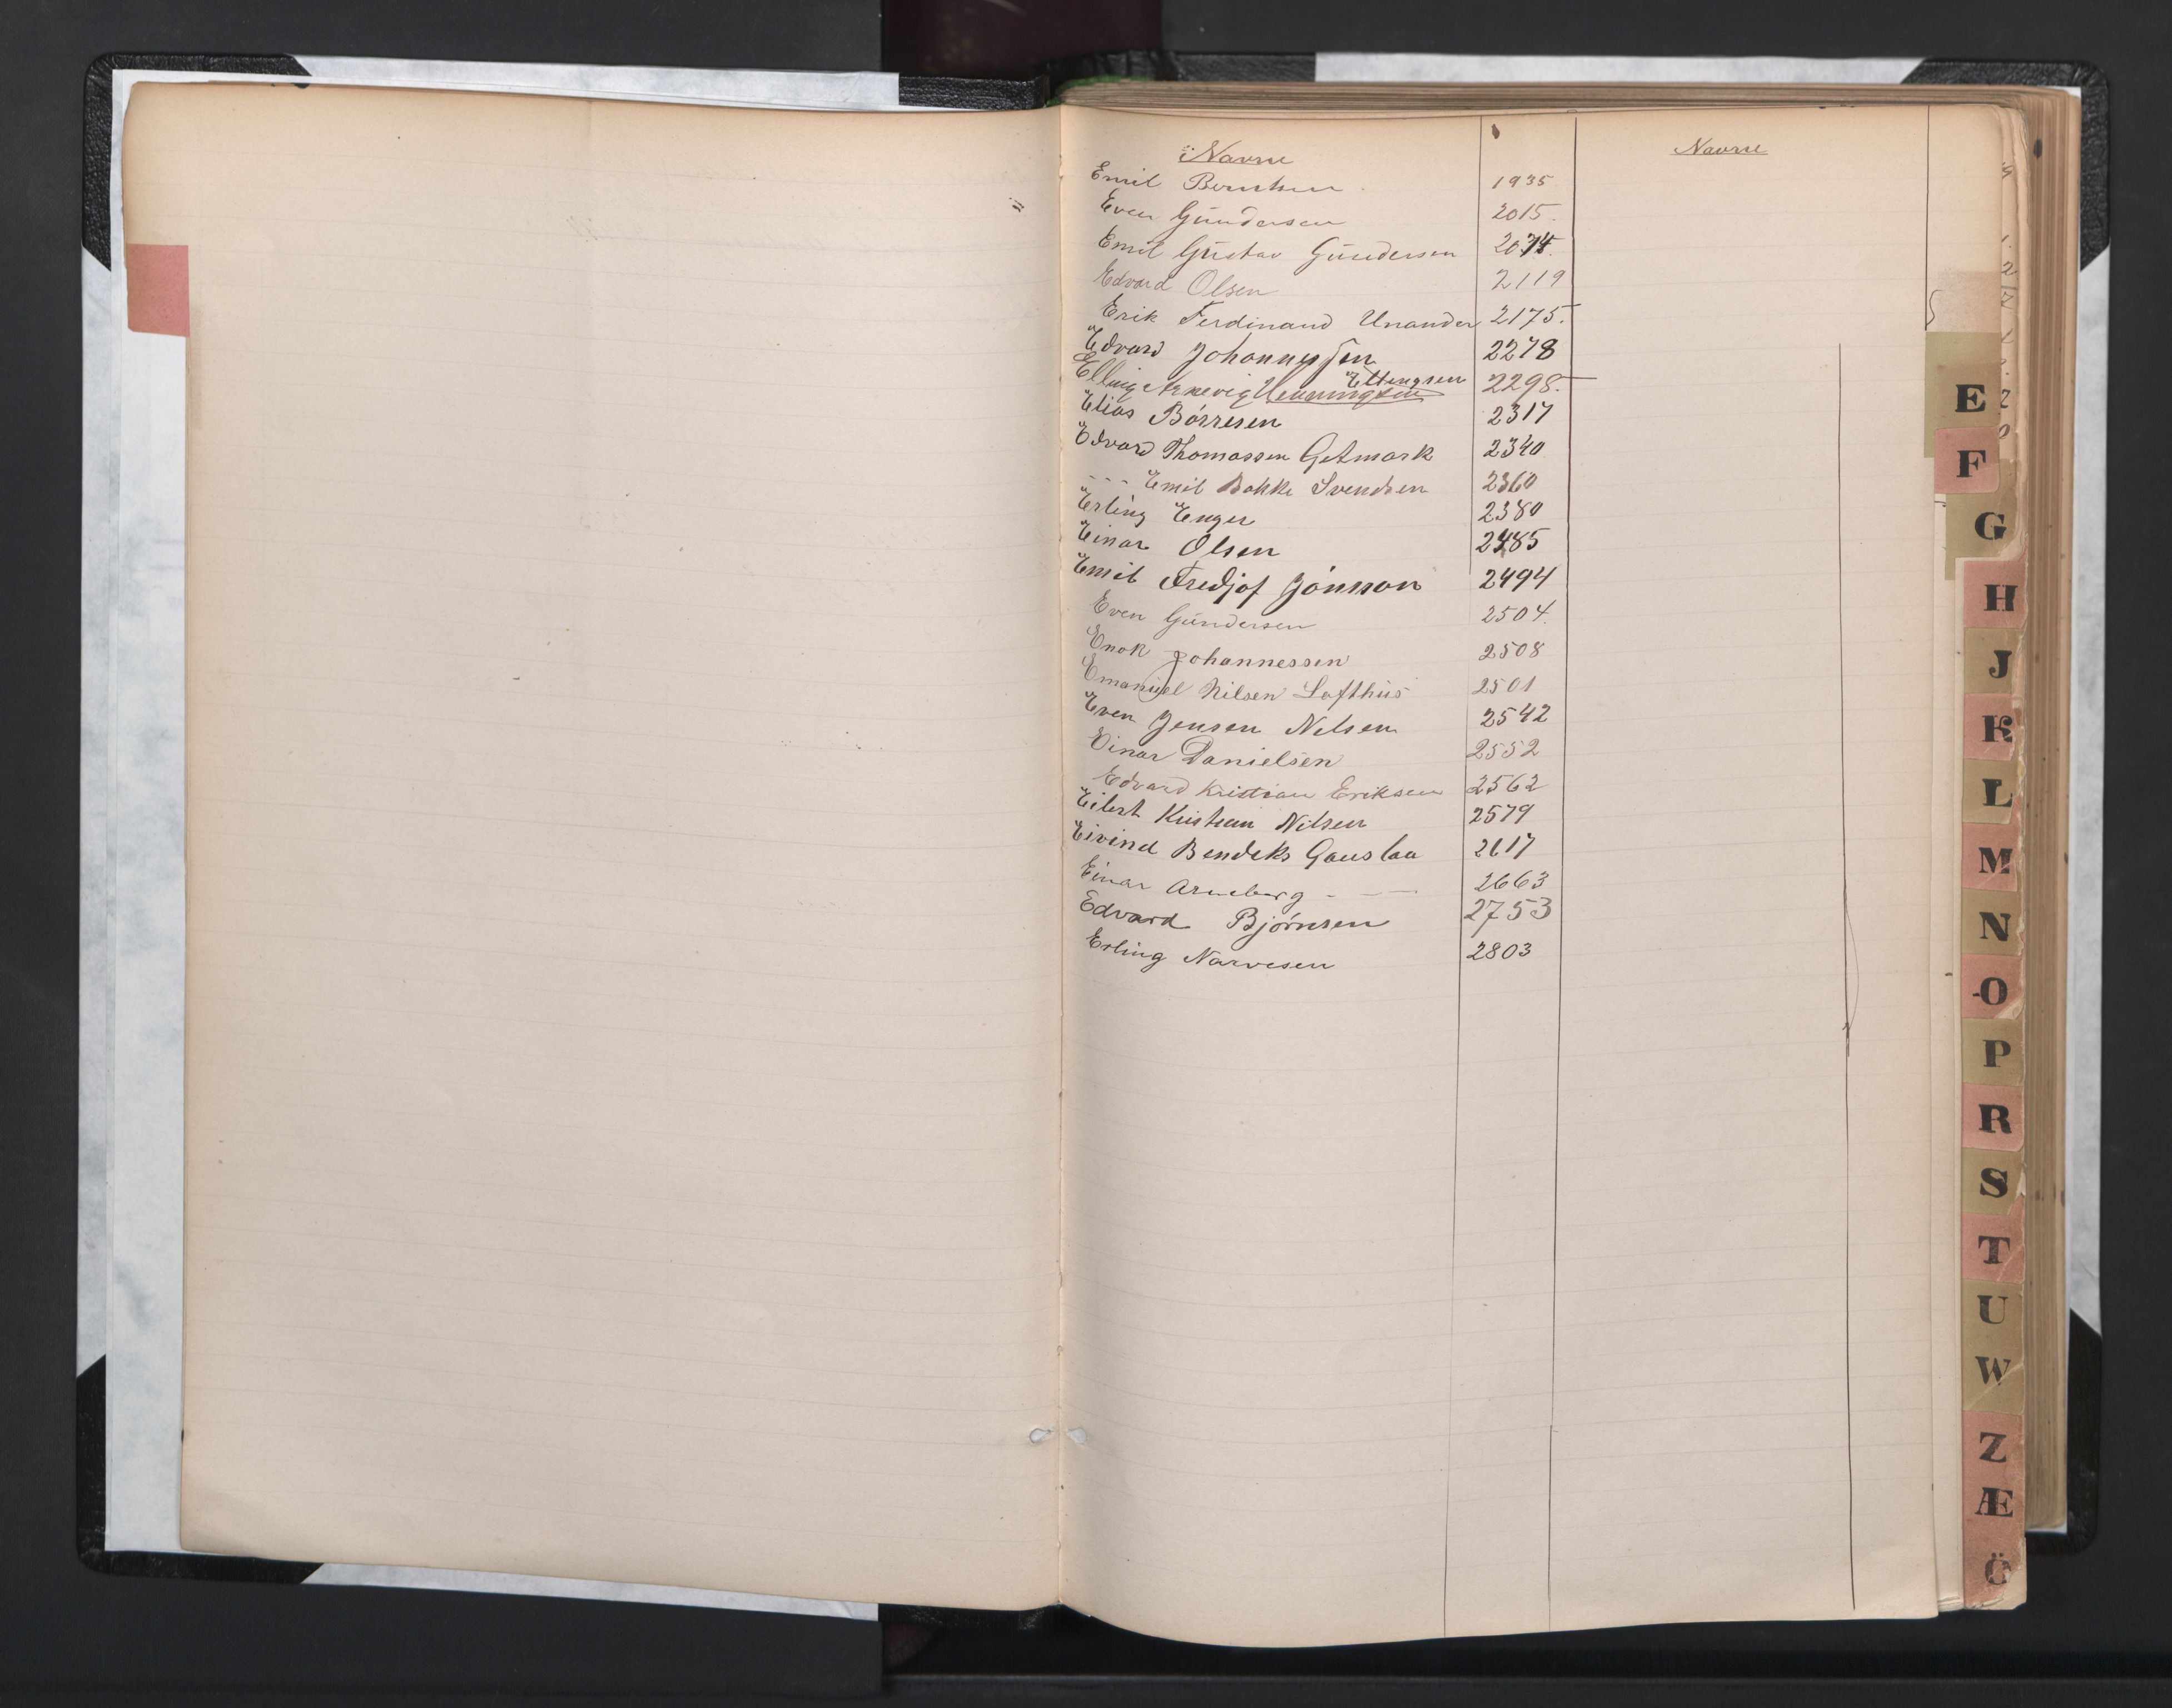 Navne
Navne
Emil Berntsen 1935
Even Gundersen 2015.
Emil Gustav Gundersen 2074.
Edvard Olsen 2119
Erik Ferdinand Unander 2175.
Edvard Johannessen 2278
Ellingsen
Elling Arnevig Henningsen 2298.
Elias Börresen 2317
Edvard Thomassen Getmark 2340
--- Emil Bakke Svendsen 2360
Erling Enger 2380
Einar Olsen 2485
Emil Fredjof Jónsson 2494
Even Gundersen 2504.
Enok Johannessen 2508
Emanuel Nilsen Lofthus 2501
Even Jensen Nilsen 2542
Einar Danielsen 2552
Edvard Kristian Eriksen 2562
Eilert Kristian Nilsen 2579
Eivind Bendiks Gauslaa 2617
Einar Arneberg - — 2663
Edvard Bjørnsen 2753
Erling Narvesen 2803
E
F
G
H
J
K
L
M
N
O
P
R
S
T
U
W
Z
Æ
Ö